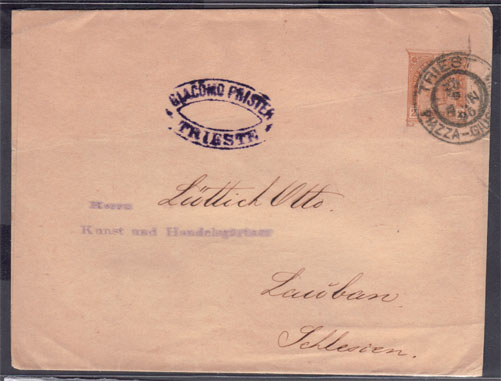 GIACOMO PRISTER
TRIESTE
TRIEST
PIAZZA-GIU
Herrn Lüttich Otto.
Kunst und Handelsgärtner
Lauban.
Schlesien.